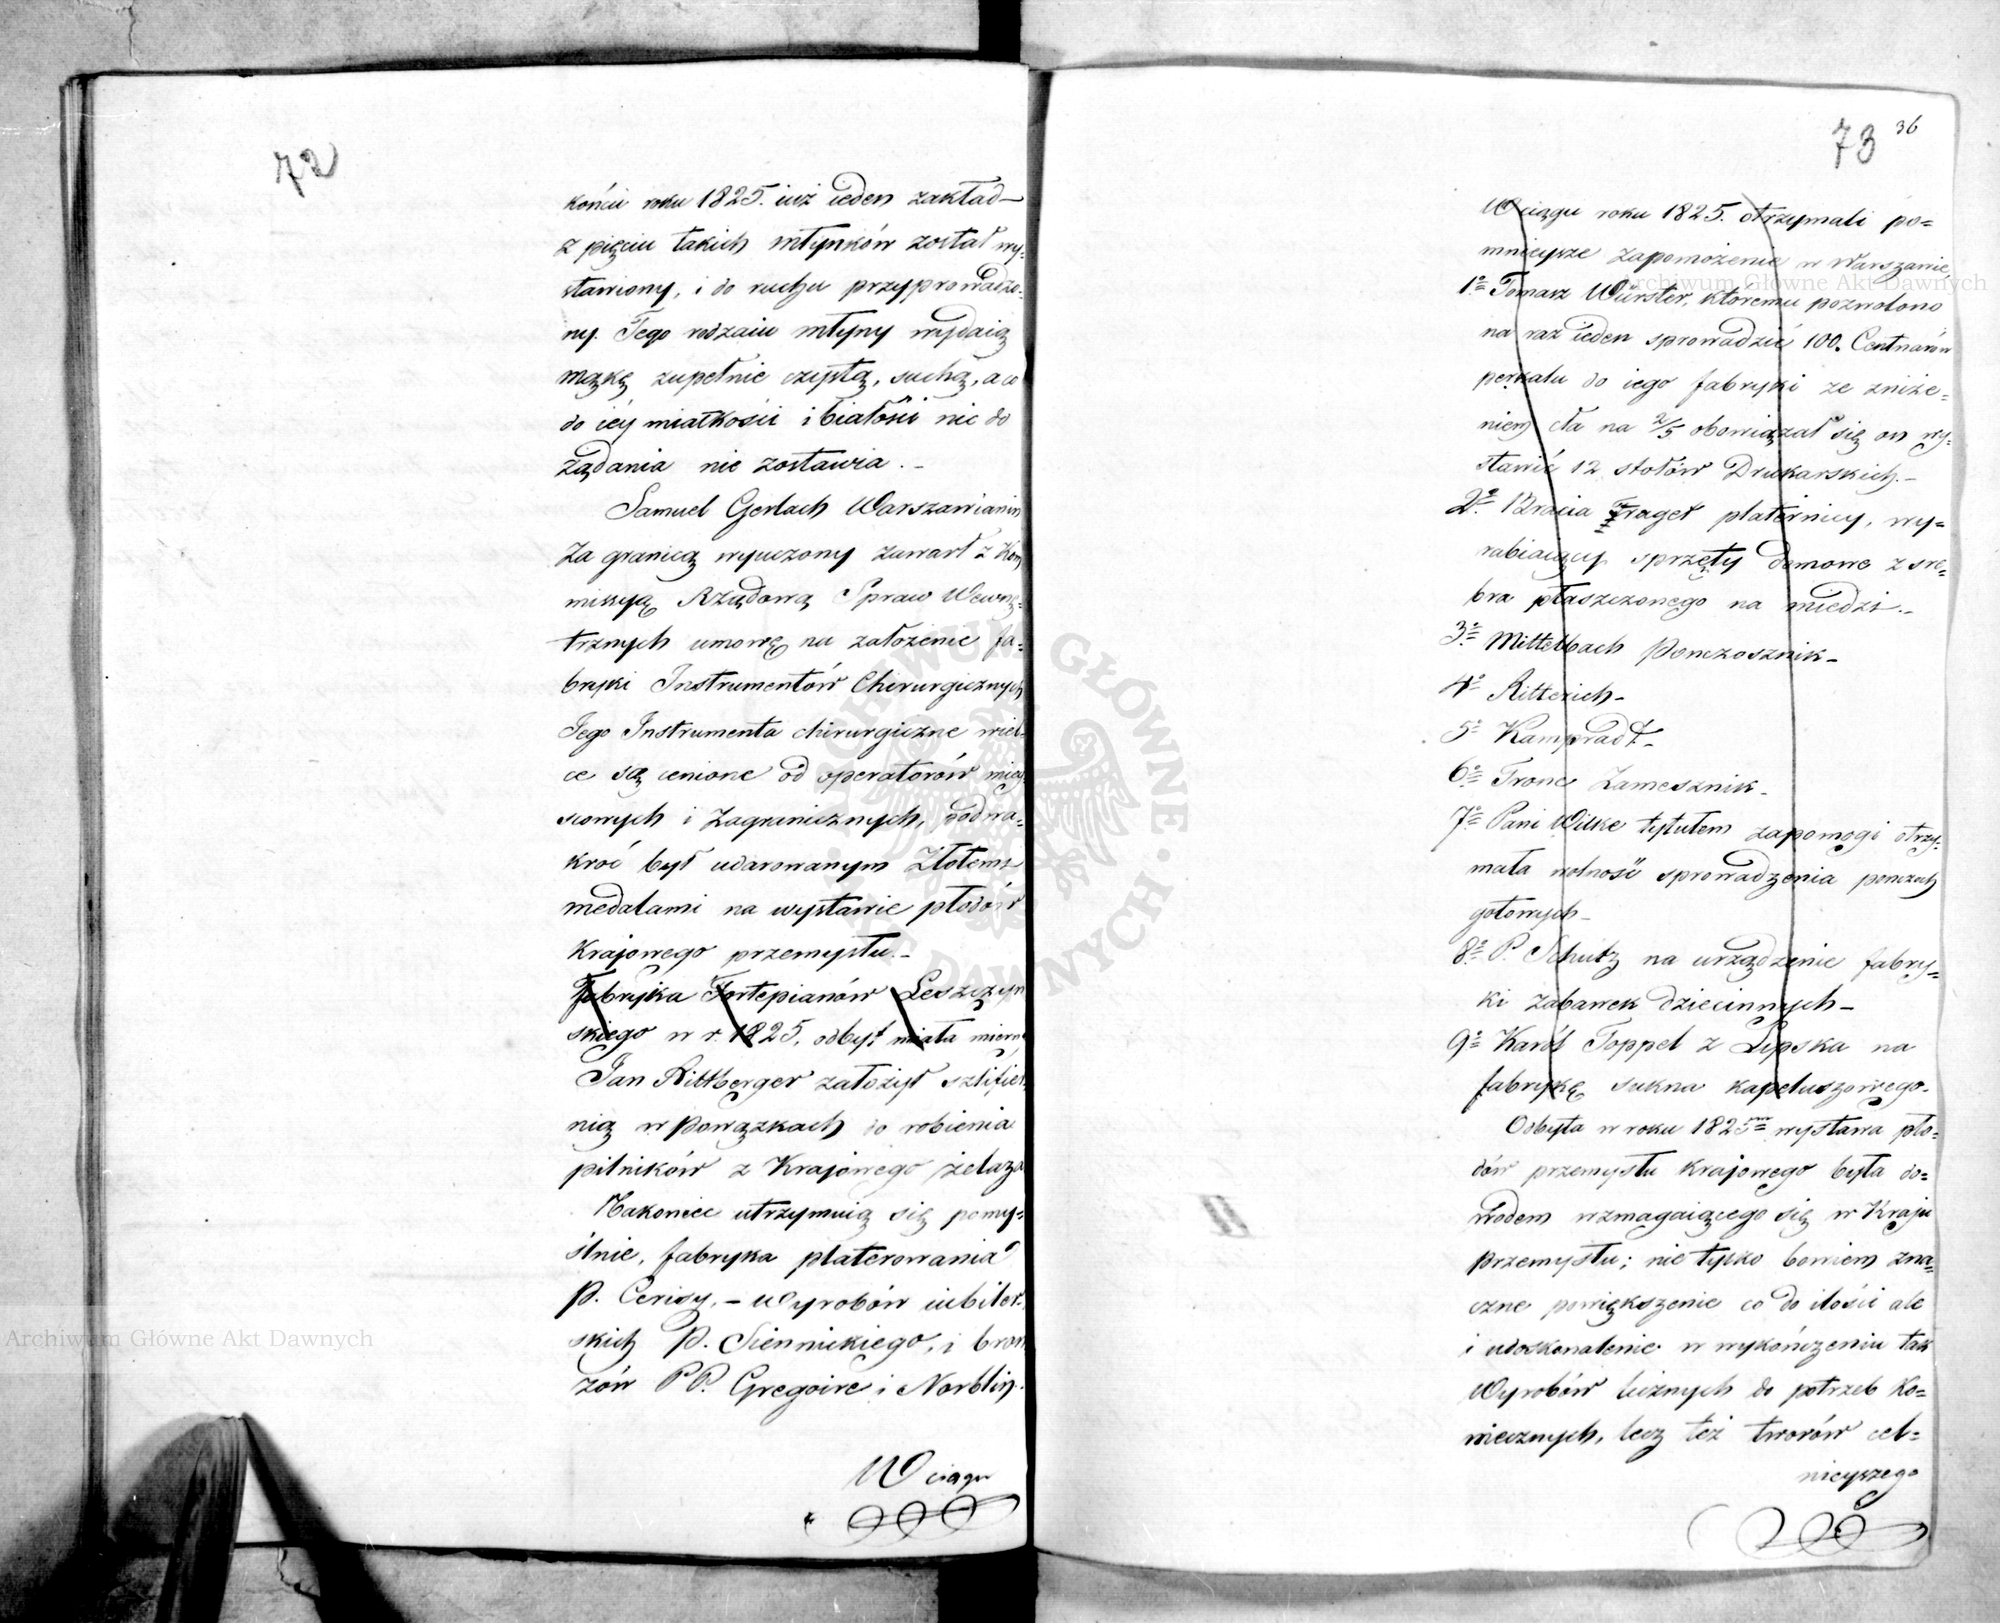 72
końcu roku 1825. iuż ieden zakład
z pięciu takich młynków został wy-
stawiony, i do ruchu przyprowadzo-
ny. Tego rodzaiu młyny wydaią
mąkę zupełnie czystą, suchą, a co
do iéy miałkości i białości nic do
żądania nie zostawia. -
Samuel Gerlach Warszawianin
za granicą wyuczony zawarł z Kom
missyą Rządową Spraw Wewnę-
trznych umowę na założenie fa-
bryki Instrumentów Chirurgicznych
Jego Instrumenta chirurgiczne wiel-
ce są cenione od operatorów miey
scowych i zagranicznych, podwa-
kroć był udarowanym złotemi
medalami na wystawie płodów
Krajowego przemysłu. -
Fabryka Fortepianów Leszczyń
skiego w r. 1825, odbyt miała mierny
Jan Rittberger założył szlifier
nią w Powązkach do robienia
pilników z Krajowego żelaza
Nakoniec utrzymuią się pomy-
ślnie, fabryka platerowania
P. Cerisy, - wyrobów iubiler-
skich P. Siennickiego, i bron
zów PP. Gregoire i Norblin.
W ciągu
73 36
W ciągu roku 1825. otrzymali po-
mnieysze zapomożenie w Warszawie,
1o Tomasz Würster, ktoremu pozwolono
na raz ieden sprowadzić 100. Centnarów
perkalu do iego fabryki ze zniże-
niem cła na 2/5 obowiązał się on wy-
stawić 12 stołów Drukarskich. -
2o Bracia Fraget platernicy, wy-
rabiaiący sprzęty domowe z sre-
bra płaszczonego na miedzi. -
3o Mittelbach Ponczosznik -
4o Ritterich -
5o Kampradt -
6o Tronc Zamesznik -
7o Pani Wilke tytułem zapomogi otrzy-
mała wolność sprowadzenia ponczoch
gotowych -
8o P. Schutz na urządzenie fabry-
ki zabawek dziecinnych -
9o Karól Toppel z Lipska na
fabrykę sukna kapeluszowego.
Odbyta w roku 1825m wystawa pło-
dów przemysłu krajowego była do-
wodem wzmagaiącego się w Kraju
przemysłu; nie tylko bowiem zna-
czne powiększenie co do ilości ale
i udoskonalenie w wykończeniu tak
wyrobów licznych do potrzeb Ko-
niecznych, lecz też tworów cel-
nieyszego
Archiwum Główne Akt Dawnych
Archiwum Główne Akt Dawnych
ARCHIWUM GŁÓWNE AKT DAWNYCH